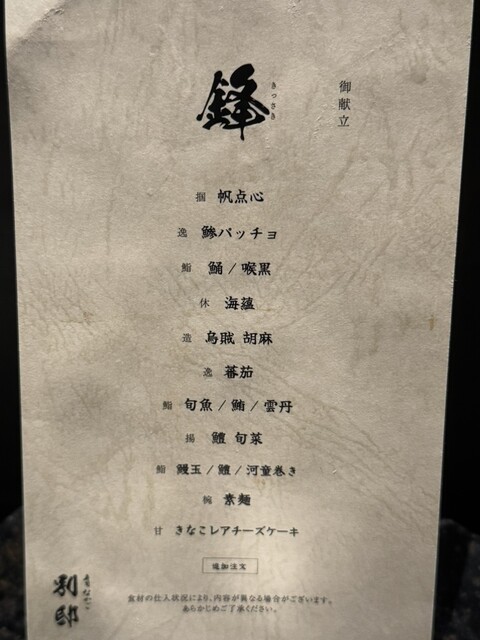 御献立
鋒
きっさき
掴 帆点心
逸 鯵パッチョ
鮨 鯒/喉黒
休 海蘊
造 烏賊 胡麻
逸 蕃茄
鮨 旬魚/鮪/雲丹
揚 鱧 旬菜
鮨 鰻玉/鱧/河童巻き
椀 素麺
甘 きなこレアチーズケーキ
追加注文
食材の仕入状況により、内容が異なる場合がございます。
あらかじめご了承ください。
別邸